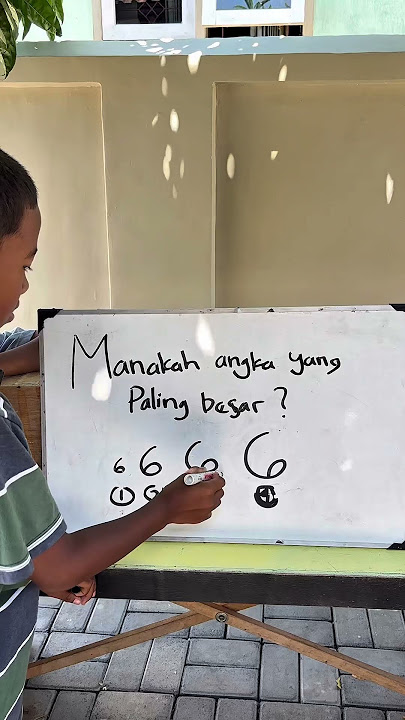 Manakah angka yang
Paling besar?
6 6 6 6
1